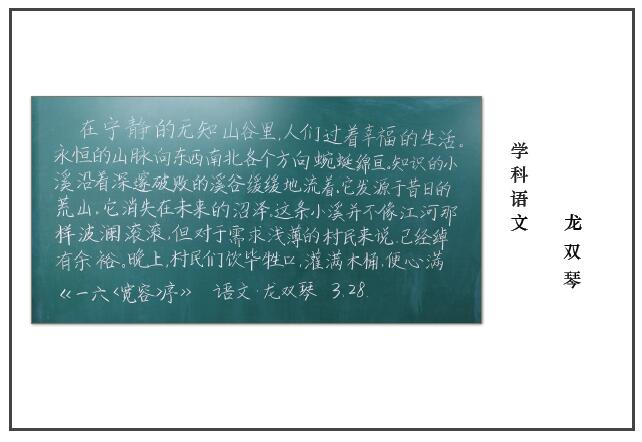 在宁静的无知山谷里,人们过着幸福的生活。
永恒的山脉向东西南北各个方向蜿蜒绵亘。知识的小
溪沿着深邃破败的溪谷缓缓地流着,它发源于昔日的
荒山,它消失在未来的沼泽。这条小溪并不像江河那
样波澜滚滚,但对于需求浅薄的村民来说,已经绰
有余裕。晚上,村民们饮毕牲口,灌满木桶,便心满
《一六<宽容>序》 语文·龙双琴 3.28.
学科语文
龙双琴